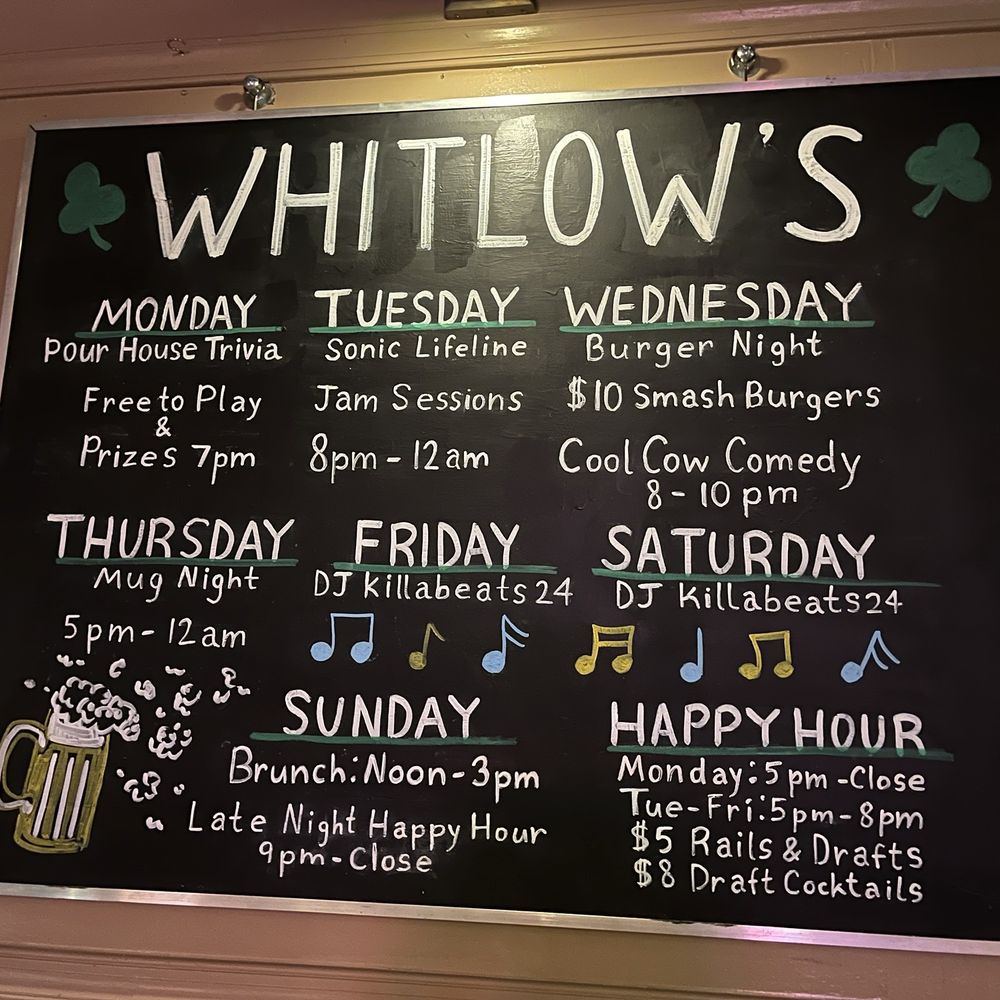 WHITLOW'S
MONDAY
Pour House Trivia
Free to Play
&
Prizes 7pm
TUESDAY
Sonic Lifeline
Jam Sessions
8pm - 12am
WEDNESDAY
Burger Night
$10 Smash Burgers
Cool Cow Comedy
8 - 10 pm
THURSDAY
Mug Night
5pm - 12am
FRIDAY
DJ Killabeats24
SATURDAY
DJ Killabeats24
SUNDAY
Brunch: Noon - 3pm
Late Night Happy Hour
9pm - Close
HAPPY HOUR
Monday: 5pm - Close
Tue - Fri: 5pm - 8pm
$5 Rails & Drafts
$8 Draft Cocktails